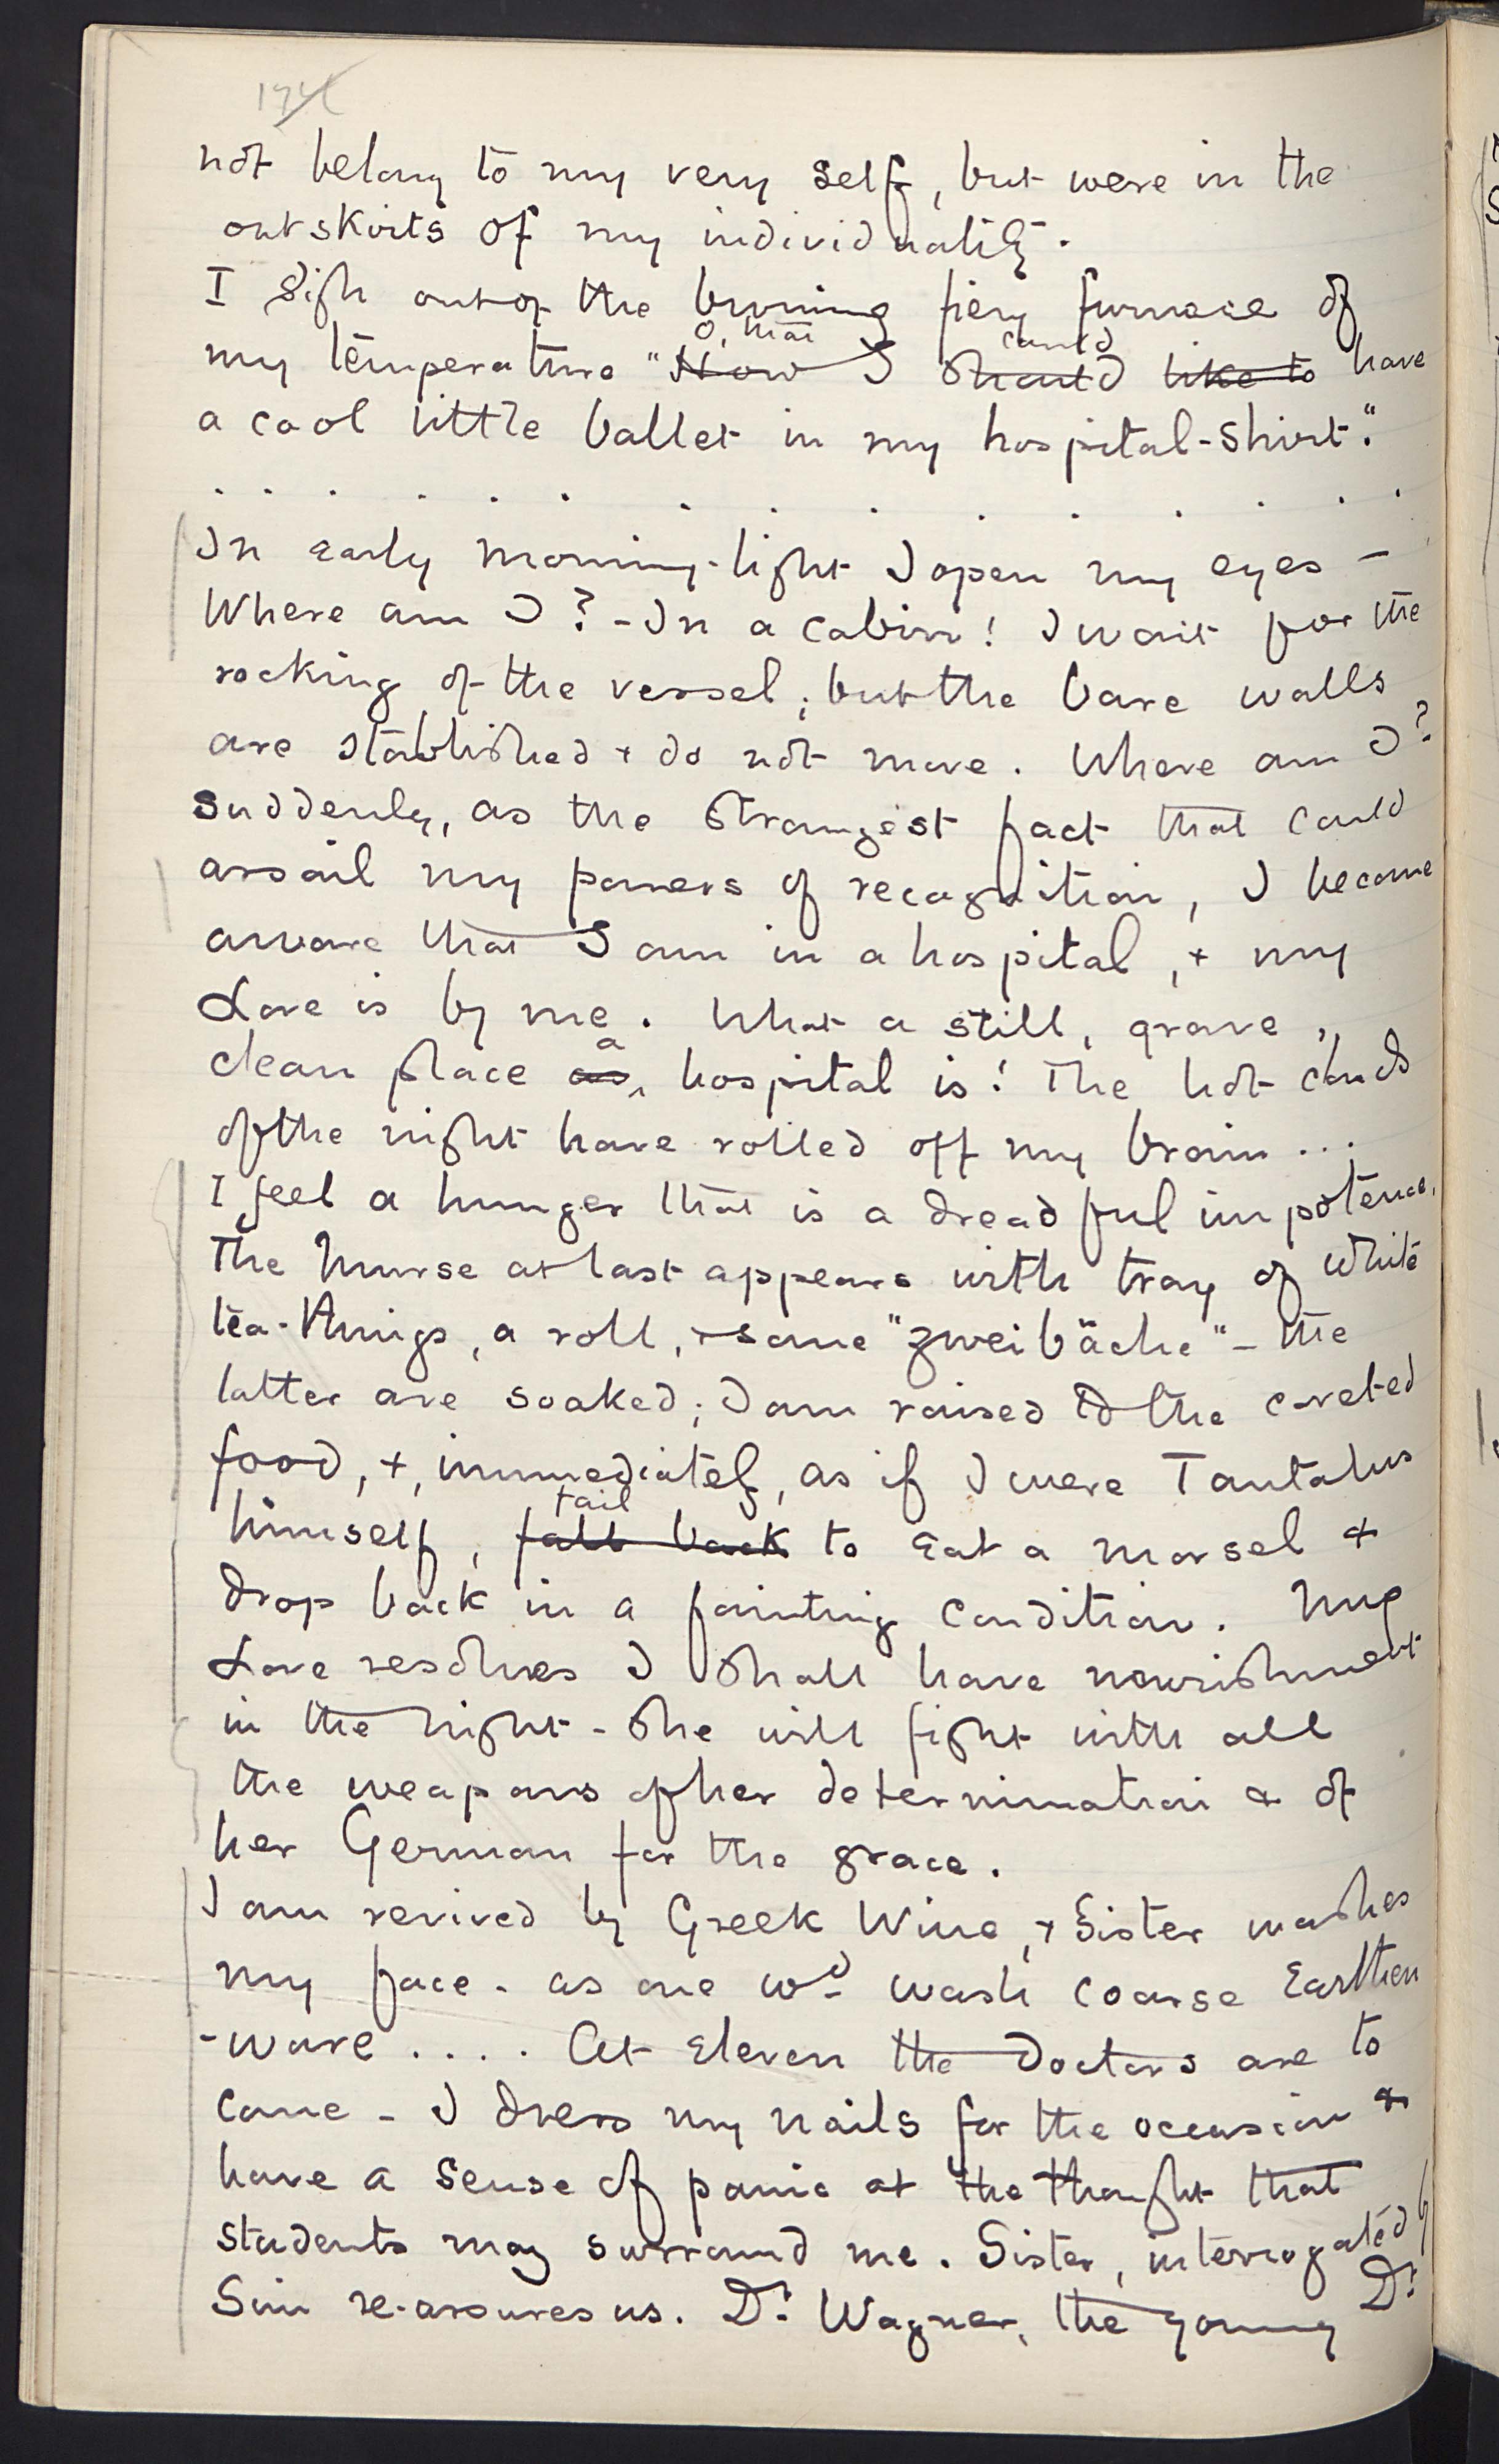 not belong to my very self, but were in the
outskirts of my individuality.
I sigh out of the burning fiery furnace of
O, that could
my temperature "How I should like to have
a cool little ballet in my hospital-shirt."
. . . . . . . . . . . . . . .
In early morning-light I open my eyes –
Where am I? – In a cabin! I wait for the
rocking of the vessel; but the bare walls
are stablished + do not move. Where am I?
Suddenly, as the strangest fact that could
assail my powers of recognition, I become
aware that I am in a hospital, + my
Love is by me. What a still, grave,
a
clean place as hospital is! The hot clouds
of the night have rolled off my brain ...
I feel a hunger that is a dreadful impotence.
The Nurse at last appears with tray of white
tea-things, a roll, + some "zweibäche" – the
latter are soaked; I am raised to the coveted
food, +, immediately, as if I were Tantalus
fail
himself, fall back to eat a morsel &
drop back in a fainting condition. My
Love resolves I shall have nourishment
in the night – She will fight with all
the weapons of her determination & of
her German for the grace.
I am revived by Greek Wine, + Sister washes
my face – as one wd wash coarse Earthen
-ware .... At Eleven the Doctors are to
come – I dress my nails for the occasion &
have a sense of panic at the thought that
students may surround me. Sister, interrogated by
Sim re-assures us. Dr Wagner, the young Dr